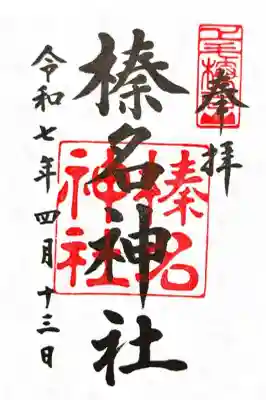 奉拝
榛名神社
榛名
神社
令和七年四月十三日